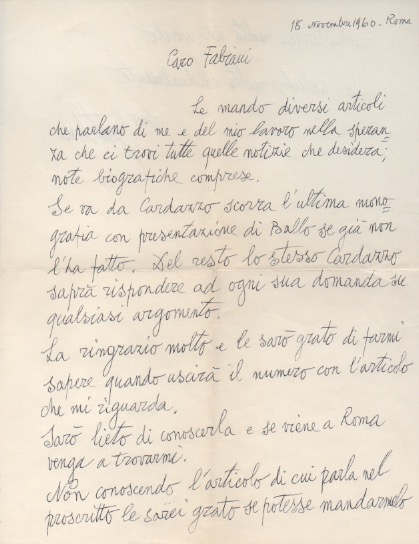 18 Novembre 1960 - Roma
Caro Fabiani
Le mando diversi articoli
che parlano di me e del mio lavoro nella speran=
za che ci trovi tutte quelle notizie che desidera;
note biografiche comprese.
Se va da Cardazzo scorra l'ultima mono=
grafia con presentazione di Ballo se già non
l'ha fatto. Del resto lo stesso Cardazzo
saprà rispondere ad ogni sua domanda su
qualsiasi argomento.
La ringrazio molto e le sarò grato di farmi
sapere quando uscirà il numero con l'articolo
che mi riguarda.
Sarò lieto di conoscerla e se viene a Roma
venga a trovarmi.
Non conoscendo l'articolo di cui parla nel
proscritto le sarei grato se potesse mandarmelo